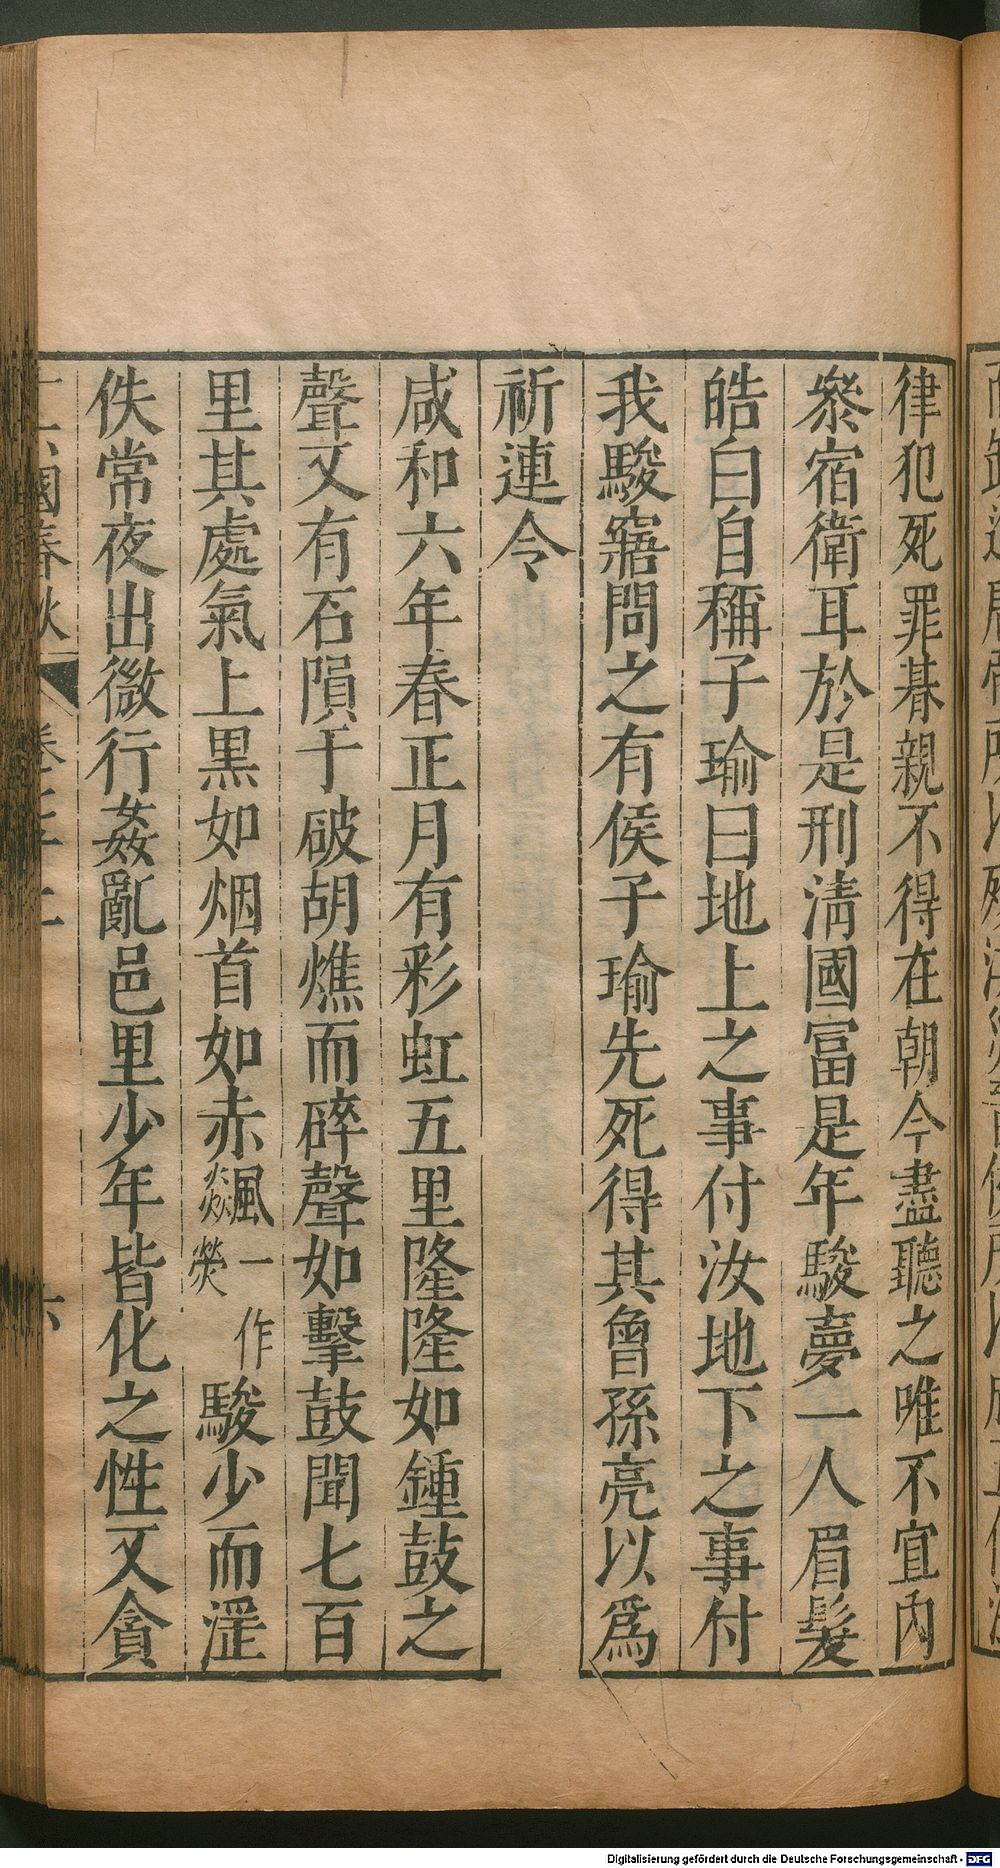 律犯死罪朞親不得在朝今盡聽之唯不宜內
叅宿衛耳於是刑淸國富是年駿夢一人眉髮
皓白自稱子瑜曰地上之事付汝地下之事付
我駿寤問之有侯子瑜先死得其曾孫亮以爲
祈連令
咸和六年春正月有彩虹五里隆隆如鍾鼓之
聲又有石隕于破胡燋而碎聲如擊鼓聞七百
里其處氣上黑如烟首如赤飊一作熒駿少而淫
佚常夜出微行姦亂邑里少年皆化之性又貪
國春秋
Digitalisierung gefördert durch die Deutsche Forschungsgemeinschaft - DFG